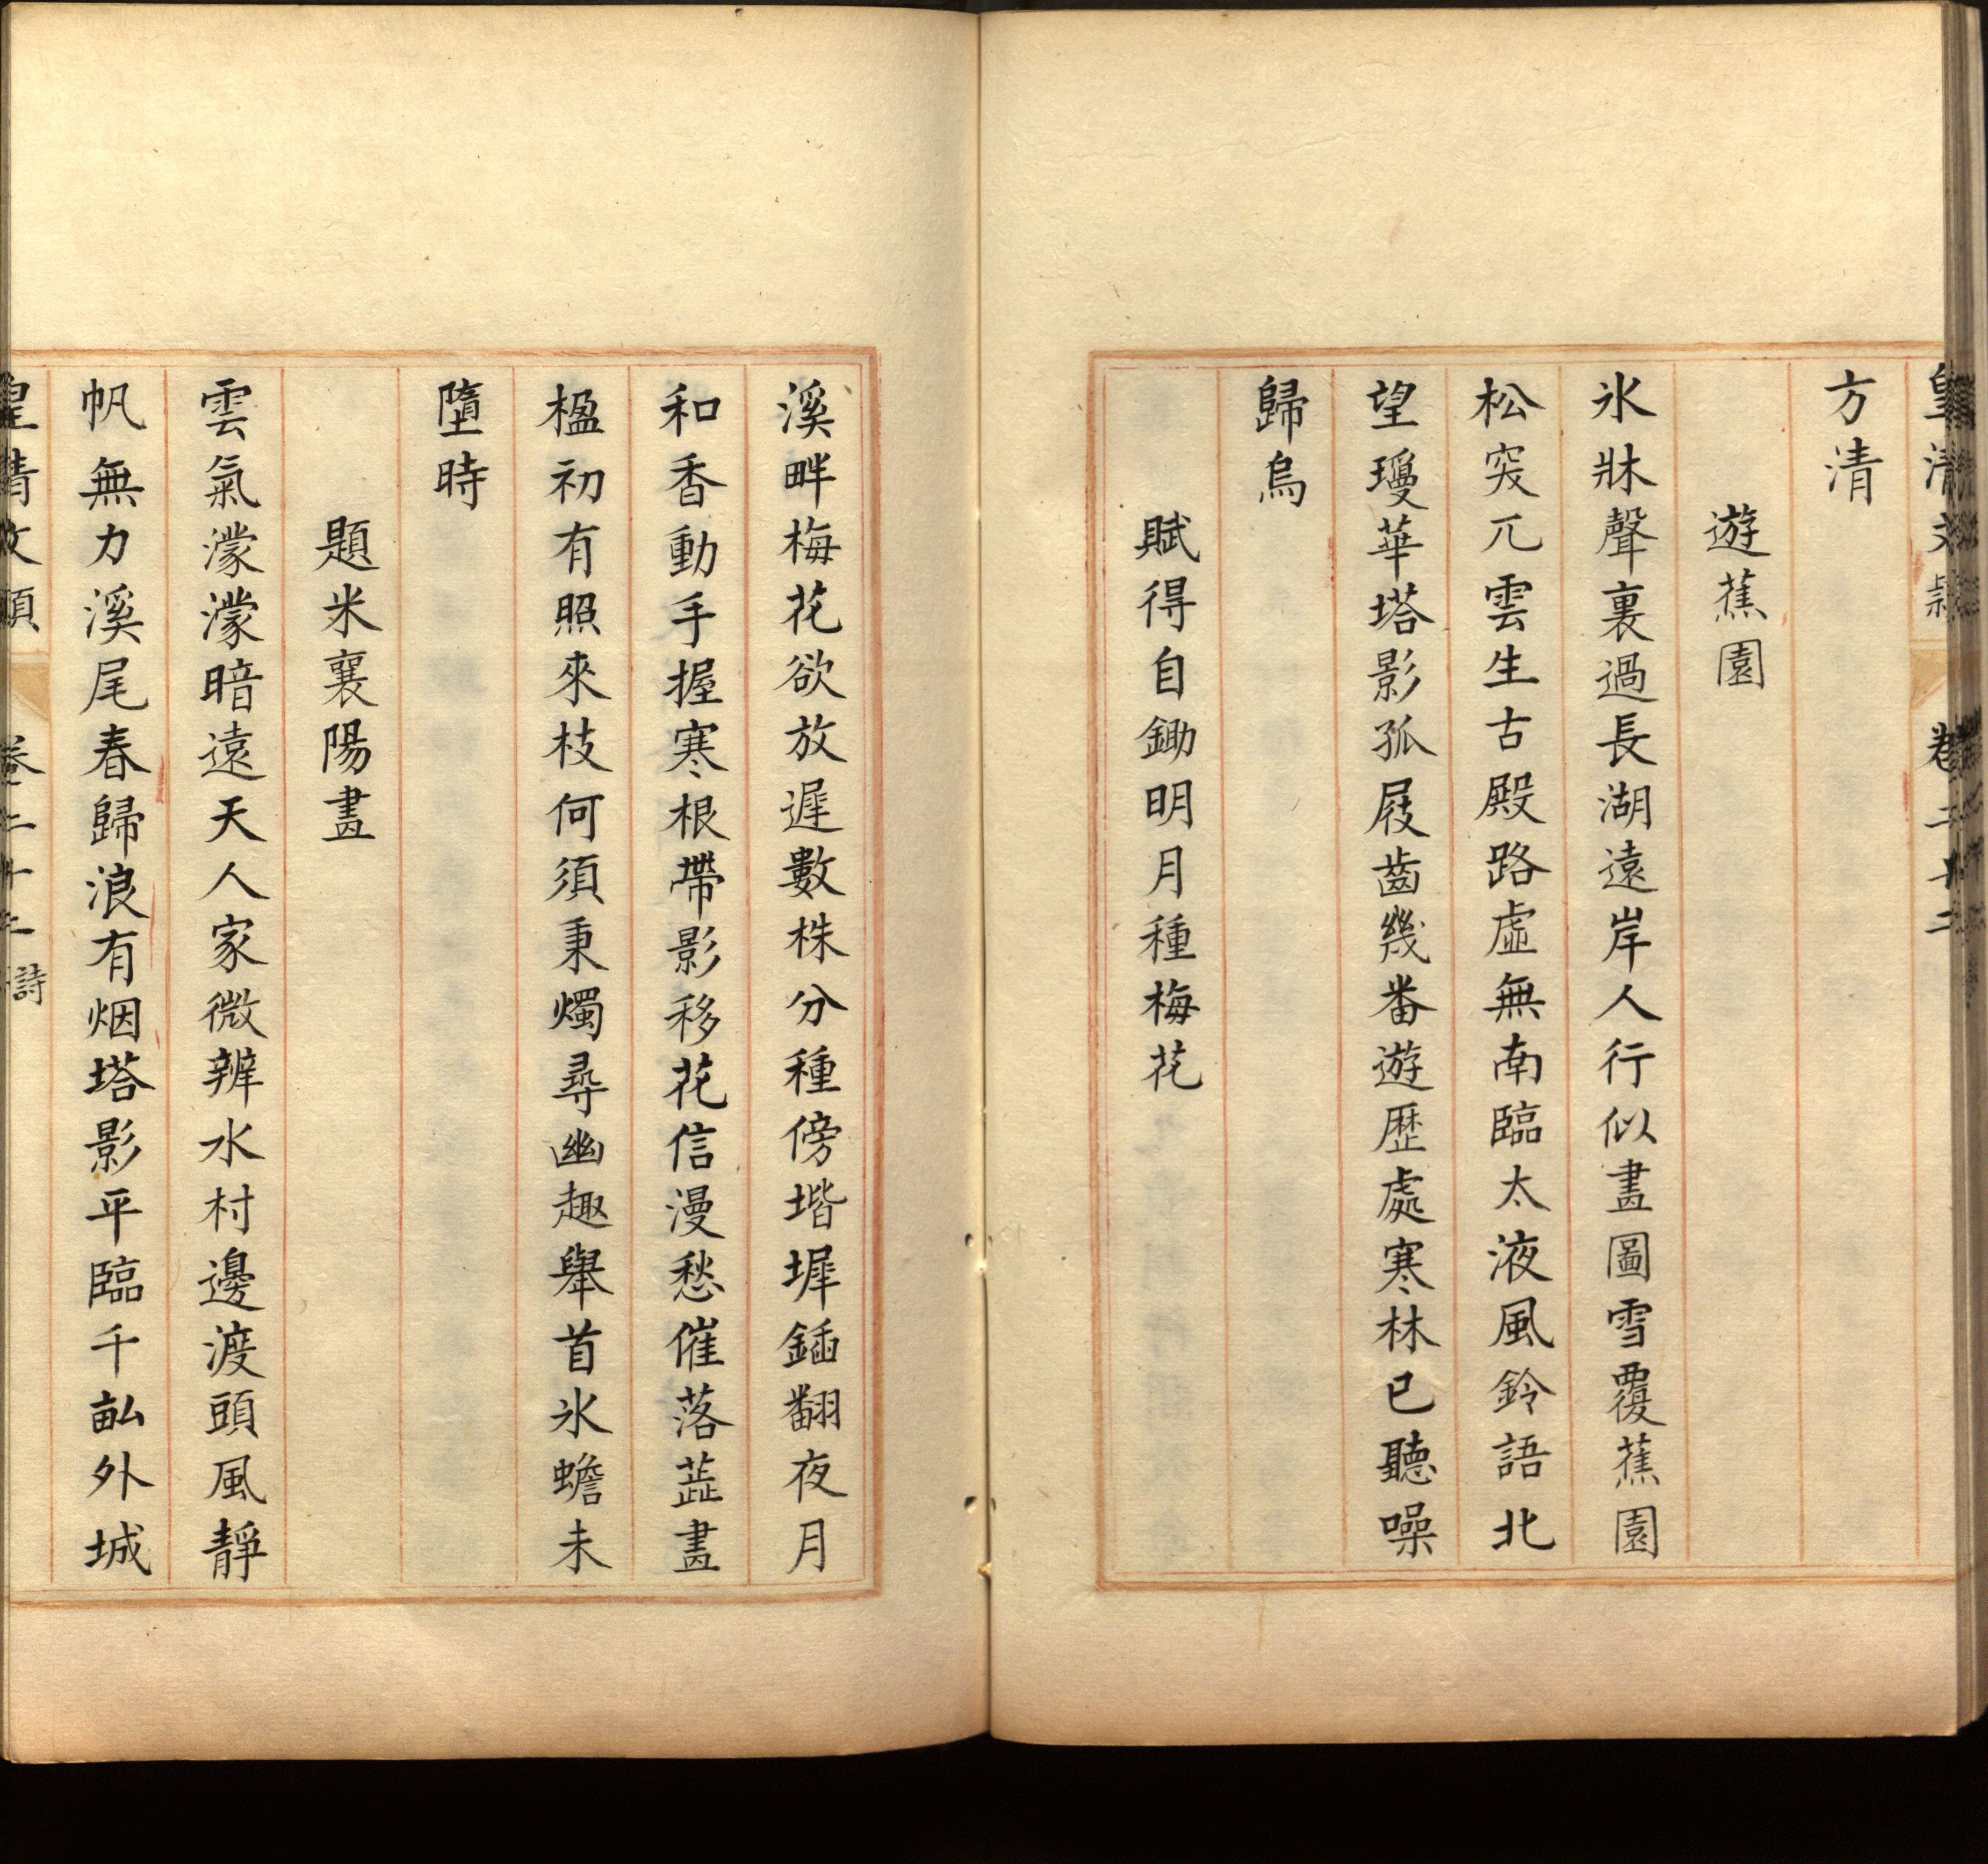 皇清文穎 卷二十二
方清
遊蕉園
氷牀聲裏過長湖遠岸人行似畫圖雪覆蕉園
松突兀雲生古殿路虛無南臨太液風鈴語北
望瓊華塔影孤屐齒幾番遊歷處寒林已聽噪
歸烏
賦得自鋤明月種梅花
溪畔梅花欲放遲數株分種傍堦墀鍤翻夜月
和香動手握寒根帶影移花信漫愁催落蘂畫
楹初有照來枝何須秉燭尋幽趣舉首氷蟾未
墮時
題米襄陽畫
雲氣濛濛暗遠天人家微辨水村邊渡頭風靜
帆無力溪尾春歸浪有烟塔影平臨千畝外城
皇清文穎 卷二十二 詩